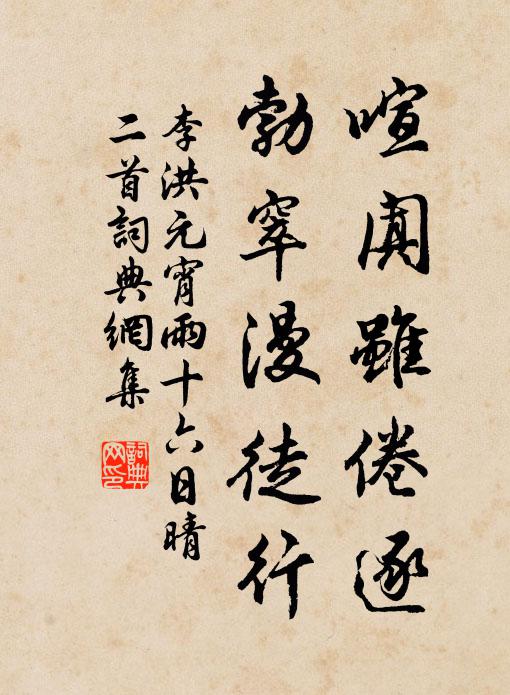 喧闐雖倦逐
勃窣漫徒行
李洪元宵雨十六日晴
二首詞典網集
詞典网印